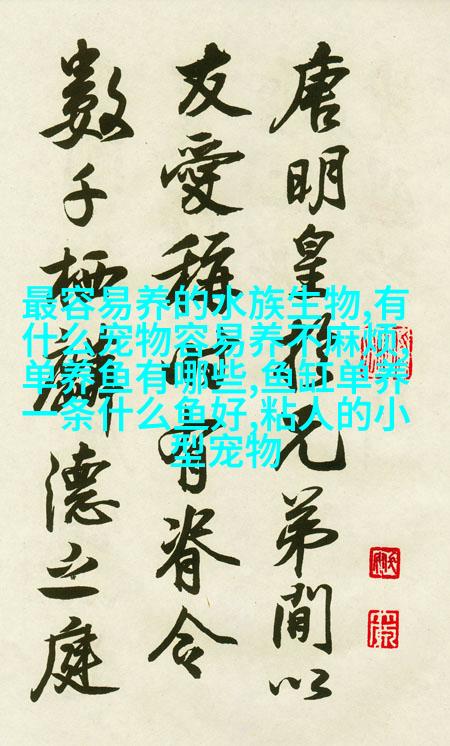 唐明皇於兄弟間以
友愛稱而有脊令
數千栖麟德之庭
最容易养的水族生物,有
什么宠物容易养不麻烦,
单养鱼有哪些,鱼缸单养
一条什么鱼好,粘人的小
型宠物